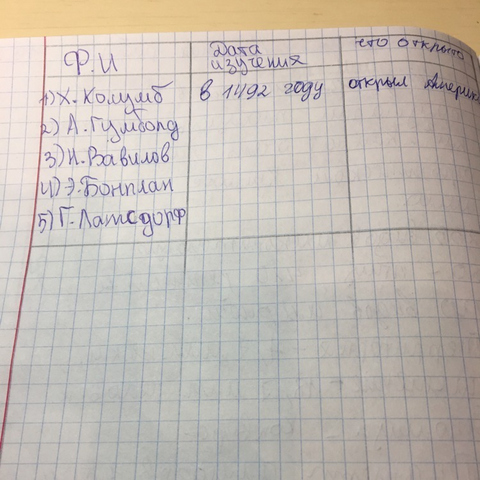 Ф.И
Дата изучения
его открытие
1) Х. Колумб
в 1492 году
открыл Америк
2) А. Гумболд
3) Н. Вавилов
4) Э. Бонплан
5) Г. Лангсдорф